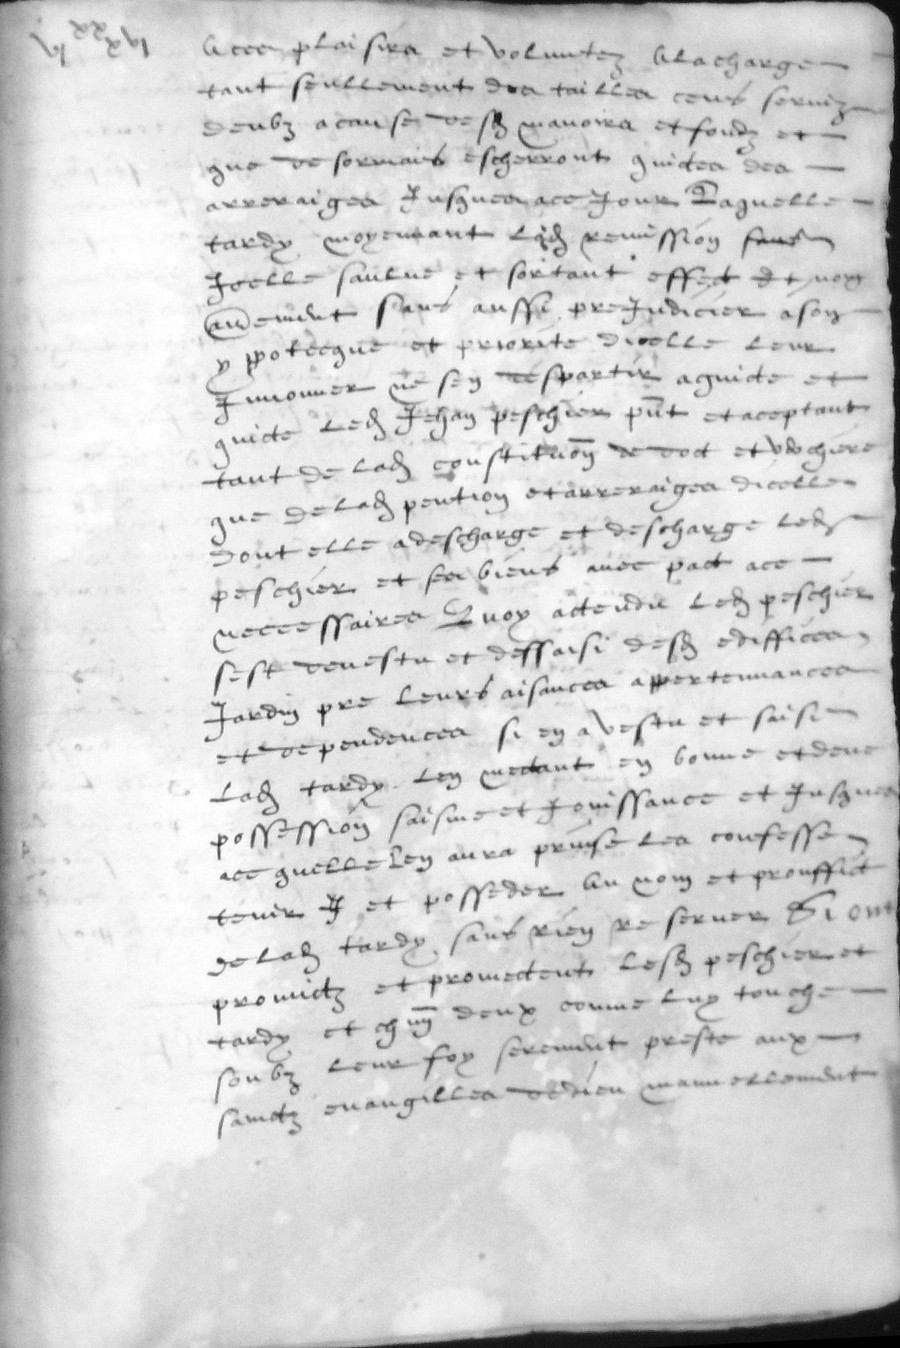 vi xx xvi
A ces plaisirs et voluntez A la charge
tant seullement des tailles cens serviz
deubz a cause desd manoirs et fondz et
que desormais escherront quictes des
arreraiges Jusques a ce Jour Laquelle
tardy moyenant lad remission
Icelle saulve et sortant effect et non
aultrement sans aussi preJudicier a son
ypotecque et priorite dicelle leur
Innouer ne sen despartir a quicte et
quicte led Jehan peschier pnt et aceptant
tant de lad constitution de dot et
que de lad pention et arreraiges dicelle
dont elle a descharge et descharge led
peschier et ses biens avec pact a ce
neccessaires Quoy actendu led peschier
sest devestu et dessaisi desd ediffices
Jardin pre leurs aisances appertenances
et deppendences si en a vestu et saisi
lad tardy len mectant en bonne et deue
possession saisine et Jouissance et Jusques
a ce quelle len aura prinse les confesse
tenir et posseder Au nom et prouffict
de lad tardy sans rien reserver Si ont
promictz et promectent lesd peschier et
tardy et chun deux comme luy touche
soubz leur foy serement preste aux
sainctz evangilles de dieu manuellement